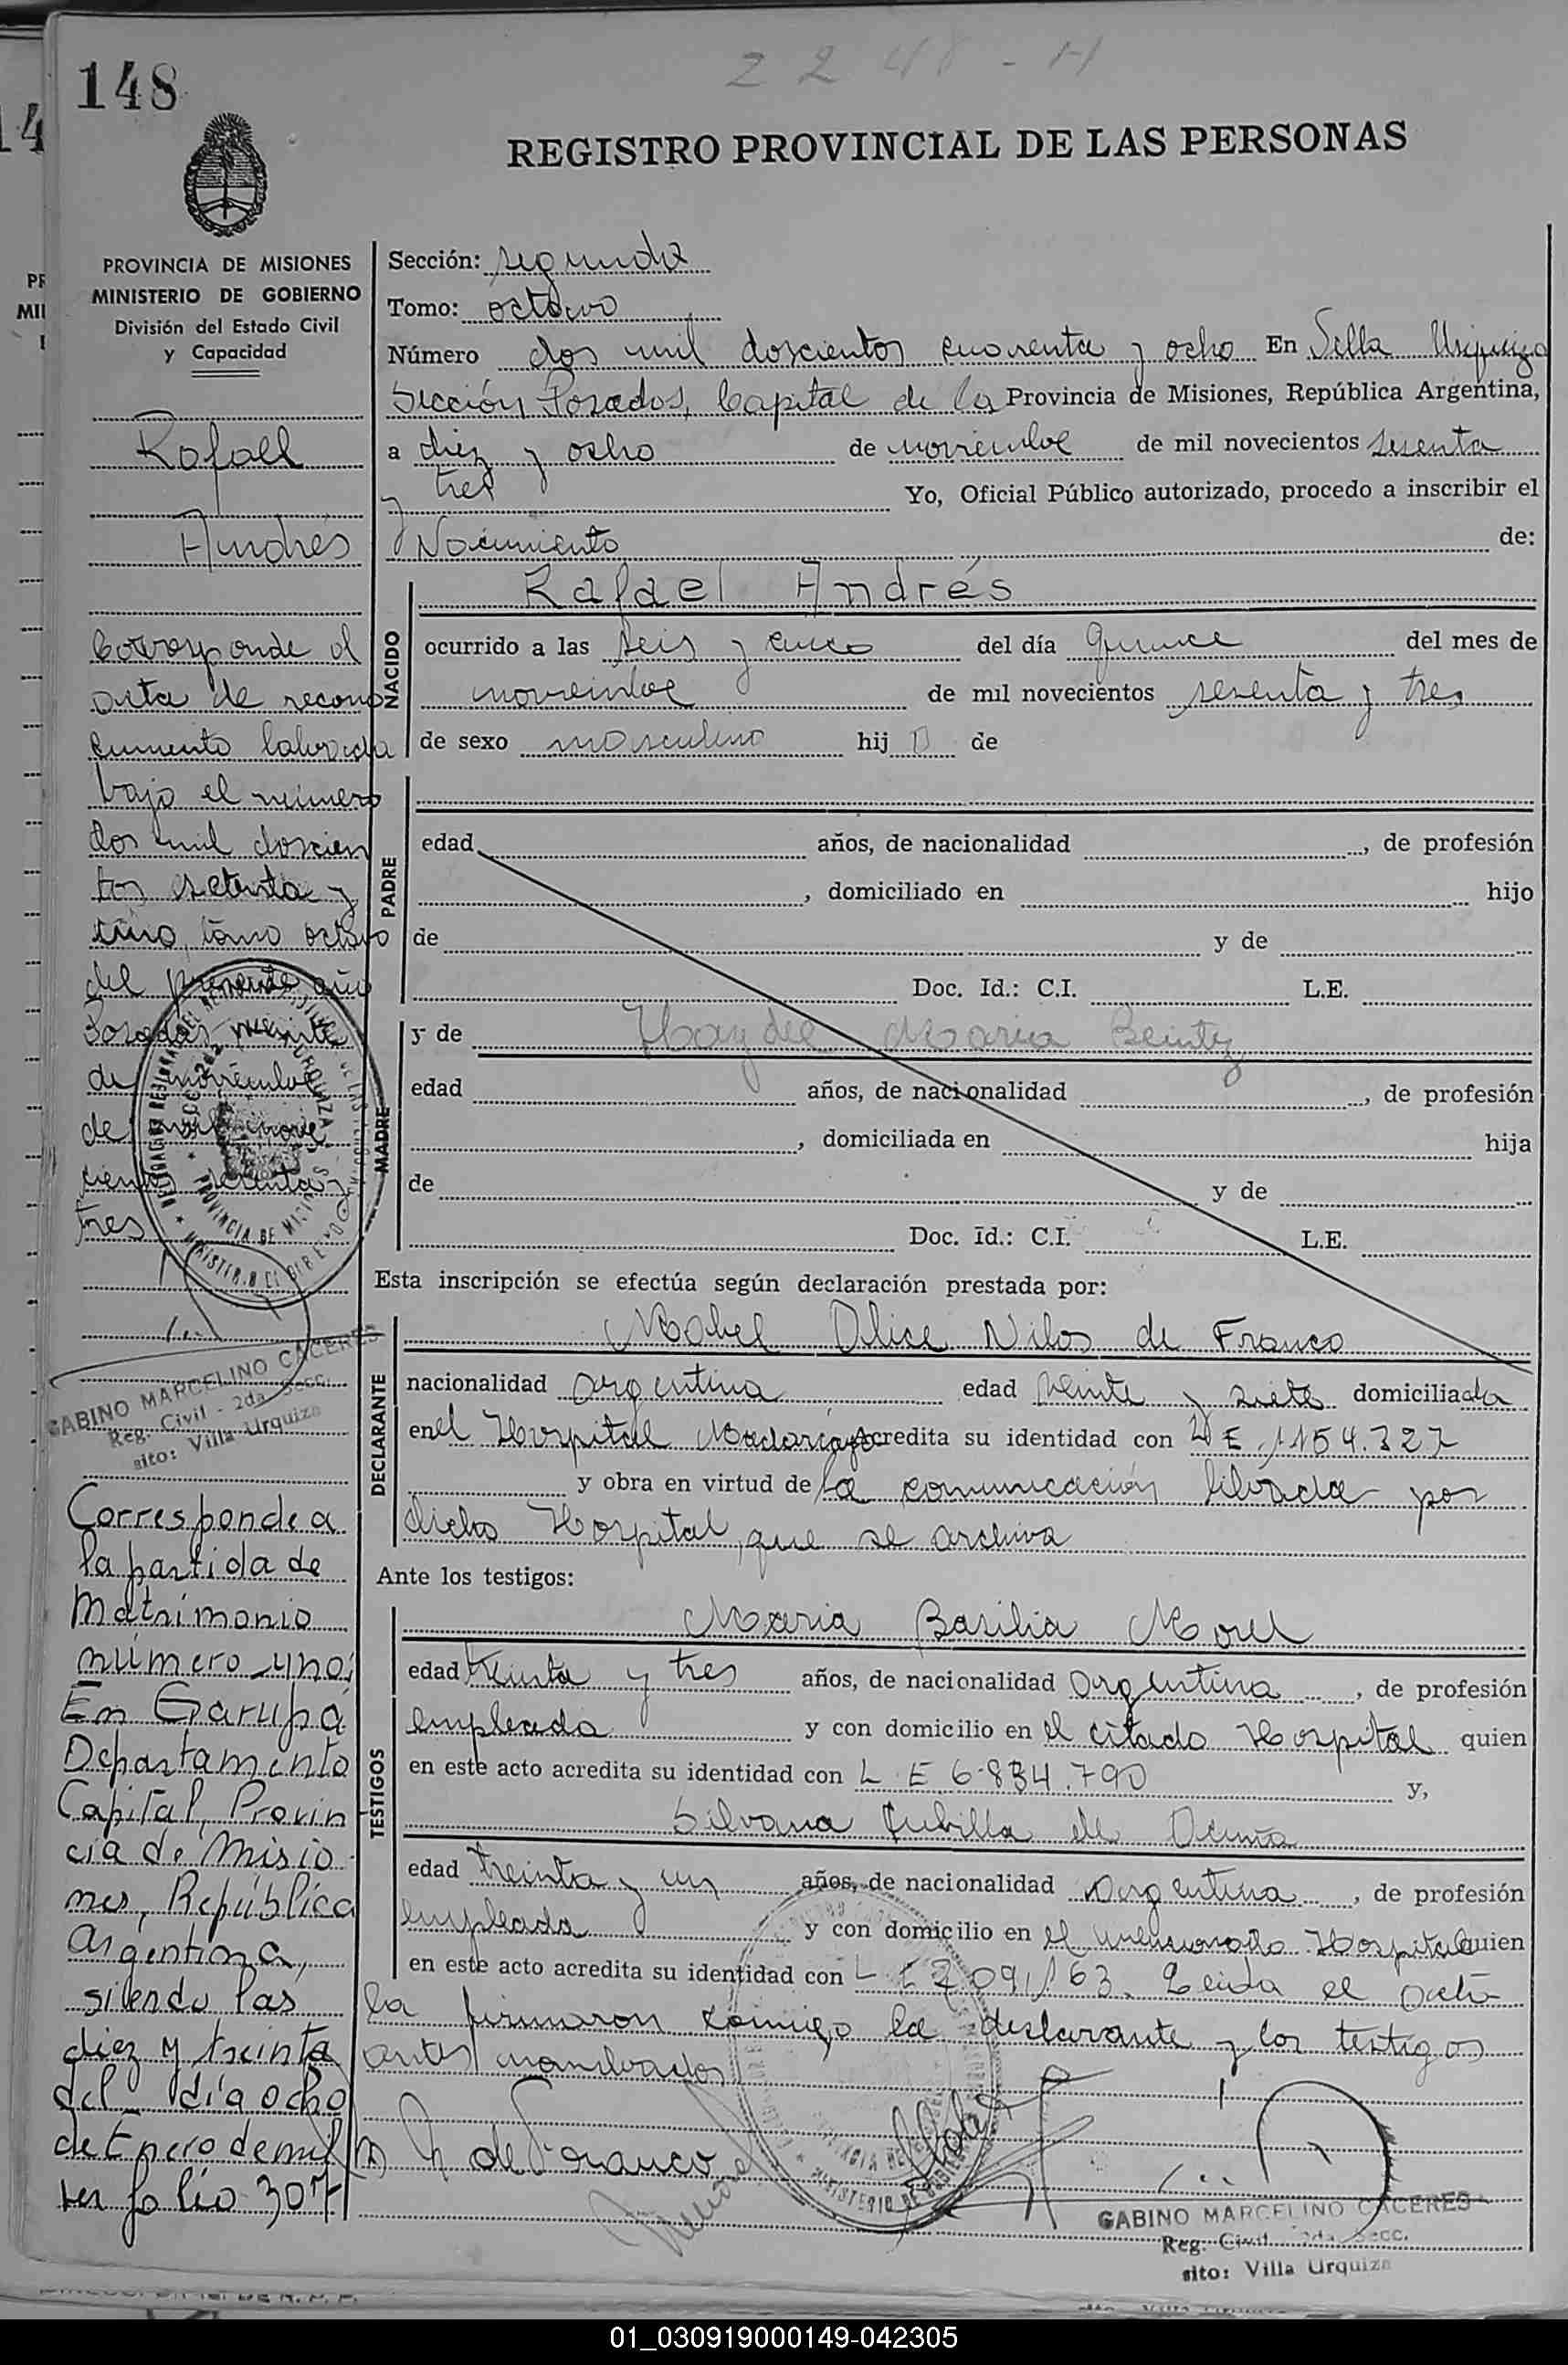 148
2248-H
REGISTRO PROVINCIAL DE LAS PERSONAS
PROVINCIA DE MISIONES
MINISTERIO DE GOBIERNO
División del Estado Civil
y Capacidad
Rafael
Andrés
Corresponde al
acta de recono
cimiento labrada
bajo el número
dos mil doscien
tos setenta y
uno, tomo octavo
del presente año
Posadas, veinte
de noviembre
de mil nove
cientos sesenta y
tres
GABINO MARCELINO CACERES
Reg. Civil - 2da. Secc.
sito: Villa Urquiza
Corresponde a
la partida de
Matrimonio
número uno;
En Garupá
Departamento
Capital, Provin
cia de Misio
nes, República
Argentina,
siendo las
diez y treinta
del día ocho
de Enero de mil
ver folio 307
Sección: segunda
Tomo: octavo
Número dos mil doscientos cuarenta y ocho En Villa Urquiza
Sección Posadas, Capital de la Provincia de Misiones, República Argentina,
a diez y ocho de noviembre de mil novecientos sesenta
y tres Yo, Oficial Público autorizado, procedo a inscribir el
Nacimiento de:
NACIDO
Rafael Andrés
ocurrido a las seis y cinco del día quince del mes de
noviembre de mil novecientos sesenta y tres
de sexo masculino hijo de
PADRE
edad años, de nacionalidad , de profesión
, domiciliado en hijo
de y de
Doc. Id.: C.I. L.E.
MADRE
y de Haydee Maria Benitez
edad años, de nacionalidad , de profesión
, domiciliada en hija
de y de
Doc. Id.: C.I. L.E.
Esta inscripción se efectúa según declaración prestada por:
DECLARANTE
Mabel Alice Nilos de Franco
nacionalidad argentina edad veinte y siete domiciliada
en el Hospital Madariaga acredita su identidad con L E 1.154.327
y obra en virtud de la comunicación librada por
dicho Hospital, que se archiva
Ante los testigos:
TESTIGOS
Maria Basilia Morel
edad treinta y tres años, de nacionalidad argentina , de profesión
empleada y con domicilio en el citado Hospital quien
en este acto acredita su identidad con L E 6.834.790 y,
Silvana Cubilla de Acuña
edad treinta y un años, de nacionalidad argentina , de profesión
empleada y con domicilio en el mencionado Hospital quien
en este acto acredita su identidad con L E 2.091.163. Leida el acta
la firmaron conmigo la declarante y los testigos
antes nombrados
de Franco
GABINO MARCELINO CACERES
Reg. Civil 2da. Secc.
sito: Villa Urquiza
01_030919000149-042305